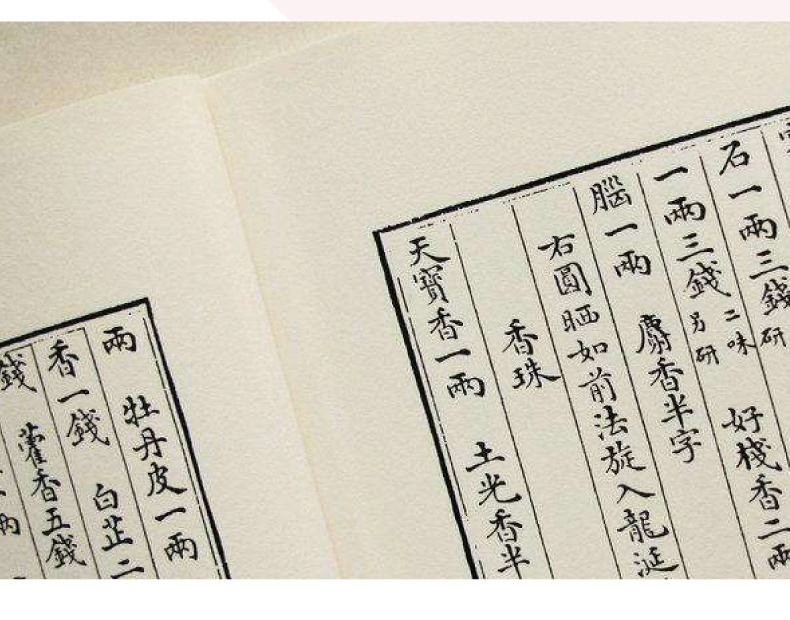 石一兩三錢研
一兩三錢二味另研
腦一兩 麝香半字 好棧香二兩
右圓晒如前法旋入龍涎
香珠
天寶香一兩 土光香半
兩 牡丹皮一兩
香一錢 白芷二
錢 藿香五錢